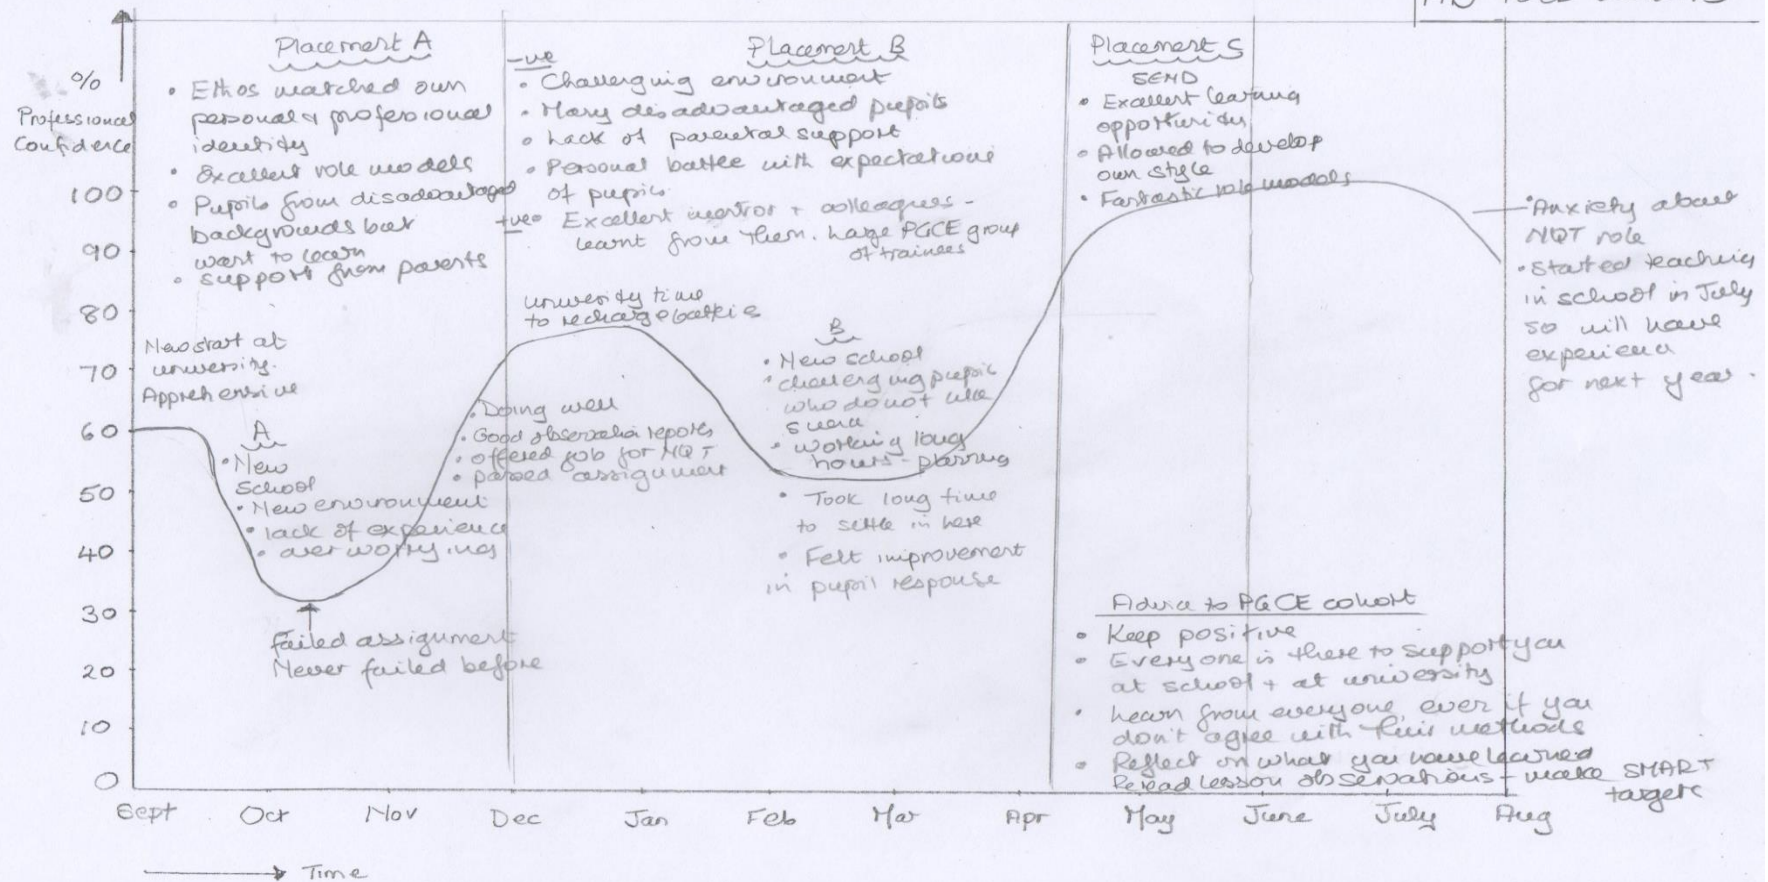 %
Professional
Confidence
100
90
80
70
60
50
40
30
20
10
0
Sept
Oct
Nov
Dec
Jan
Feb
Mar
Apr
May
June
July
Aug
Time
Placement A
• Ethos matched own
personal + professional
identity
• Excellent role models
• Pupils from disadvantaged
backgrounds but
want to learn
• support from parents
New start at
university.
Apprehensive
A
• New
School
• New environment
• lack of experience
• over worrying
Failed assignment
Never failed before
• Doing well
• Good observation reports
• offered job for NQT
• passed assignment
Placement B
-ve
• Challenging environment
• Many disadvantaged pupils
• Lack of parental support
• Personal battle with expectations
of pupils.
+ve • Excellent mentor + colleagues -
learnt from them. Large PGCE group
of trainees
university time
to recharge batteries
B
• New school
• challenging pupils
who do not
• working long
hours - planning
• Took long time
to settle in here
• Felt improvement
in pupil response
Placement S
SEND
• Excellent learning
opportunity
• Allowed to develop
own style
• Fantastic role models
• Anxiety about
NQT role
• Started teaching
in school in July
so will have
experience
for next year.
Advice to PGCE cohort
• Keep positive
• Everyone is there to support you
at school + at university
• Learn from everyone, even if you
don't agree with their methods
• Reflect on what you have learned
Reread lesson observations - make SMART
targets